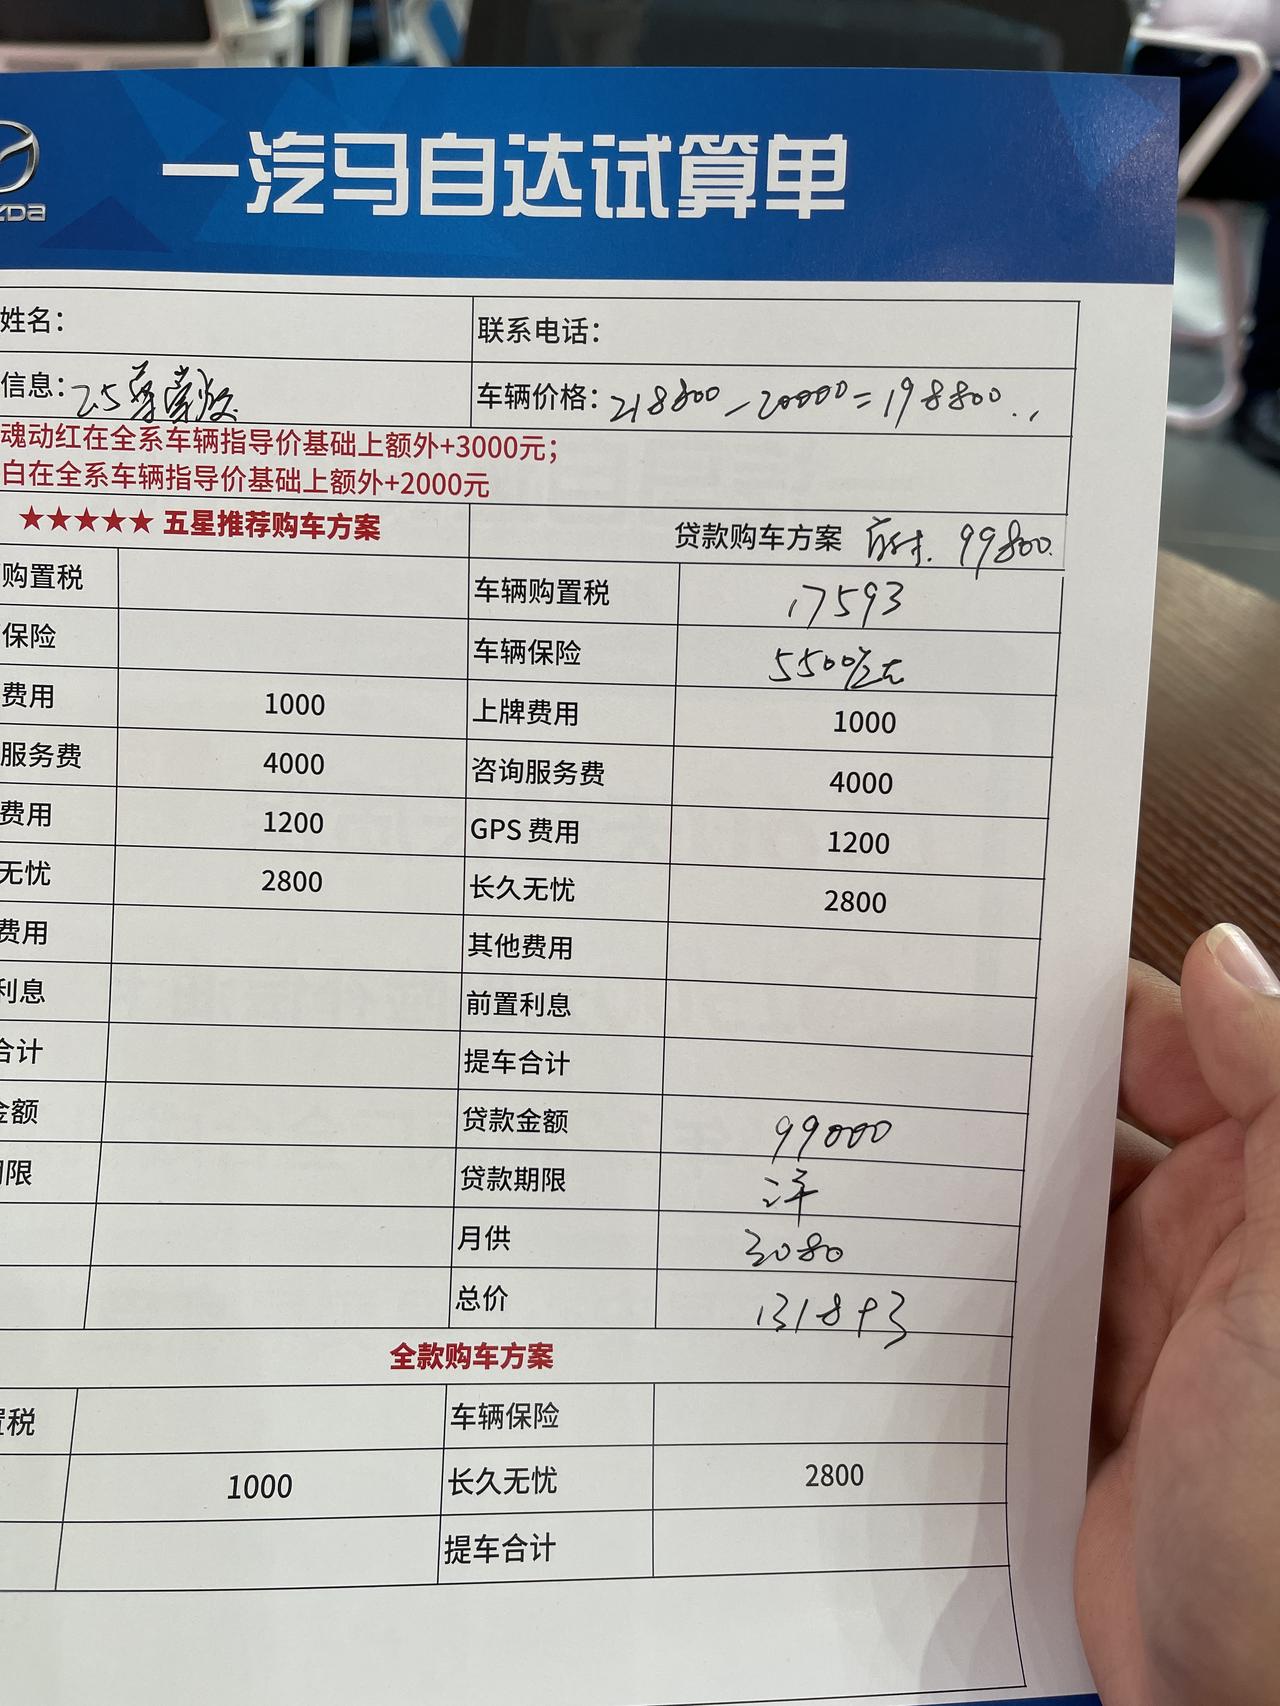 一汽马自达试算单
ZDA
姓名：
联系电话：
信息：2.5尊崇版
车辆价格：218800-20000=198800..
魂动红在全系车辆指导价基础上额外+3000元；
白在全系车辆指导价基础上额外+2000元
★★★★★ 五星推荐购车方案
贷款购车方案 首付. 99800.
购置税
车辆购置税 17593
保险
车辆保险 5500左右
费用 1000
上牌费用 1000
服务费 4000
咨询服务费 4000
费用 1200
GPS 费用 1200
无忧 2800
长久无忧 2800
费用
其他费用
利息
前置利息
合计
提车合计
金额
贷款金额 99000
期限
贷款期限 3年
月供 3080
总价 131893
全款购车方案
置税
车辆保险
1000
长久无忧 2800
提车合计